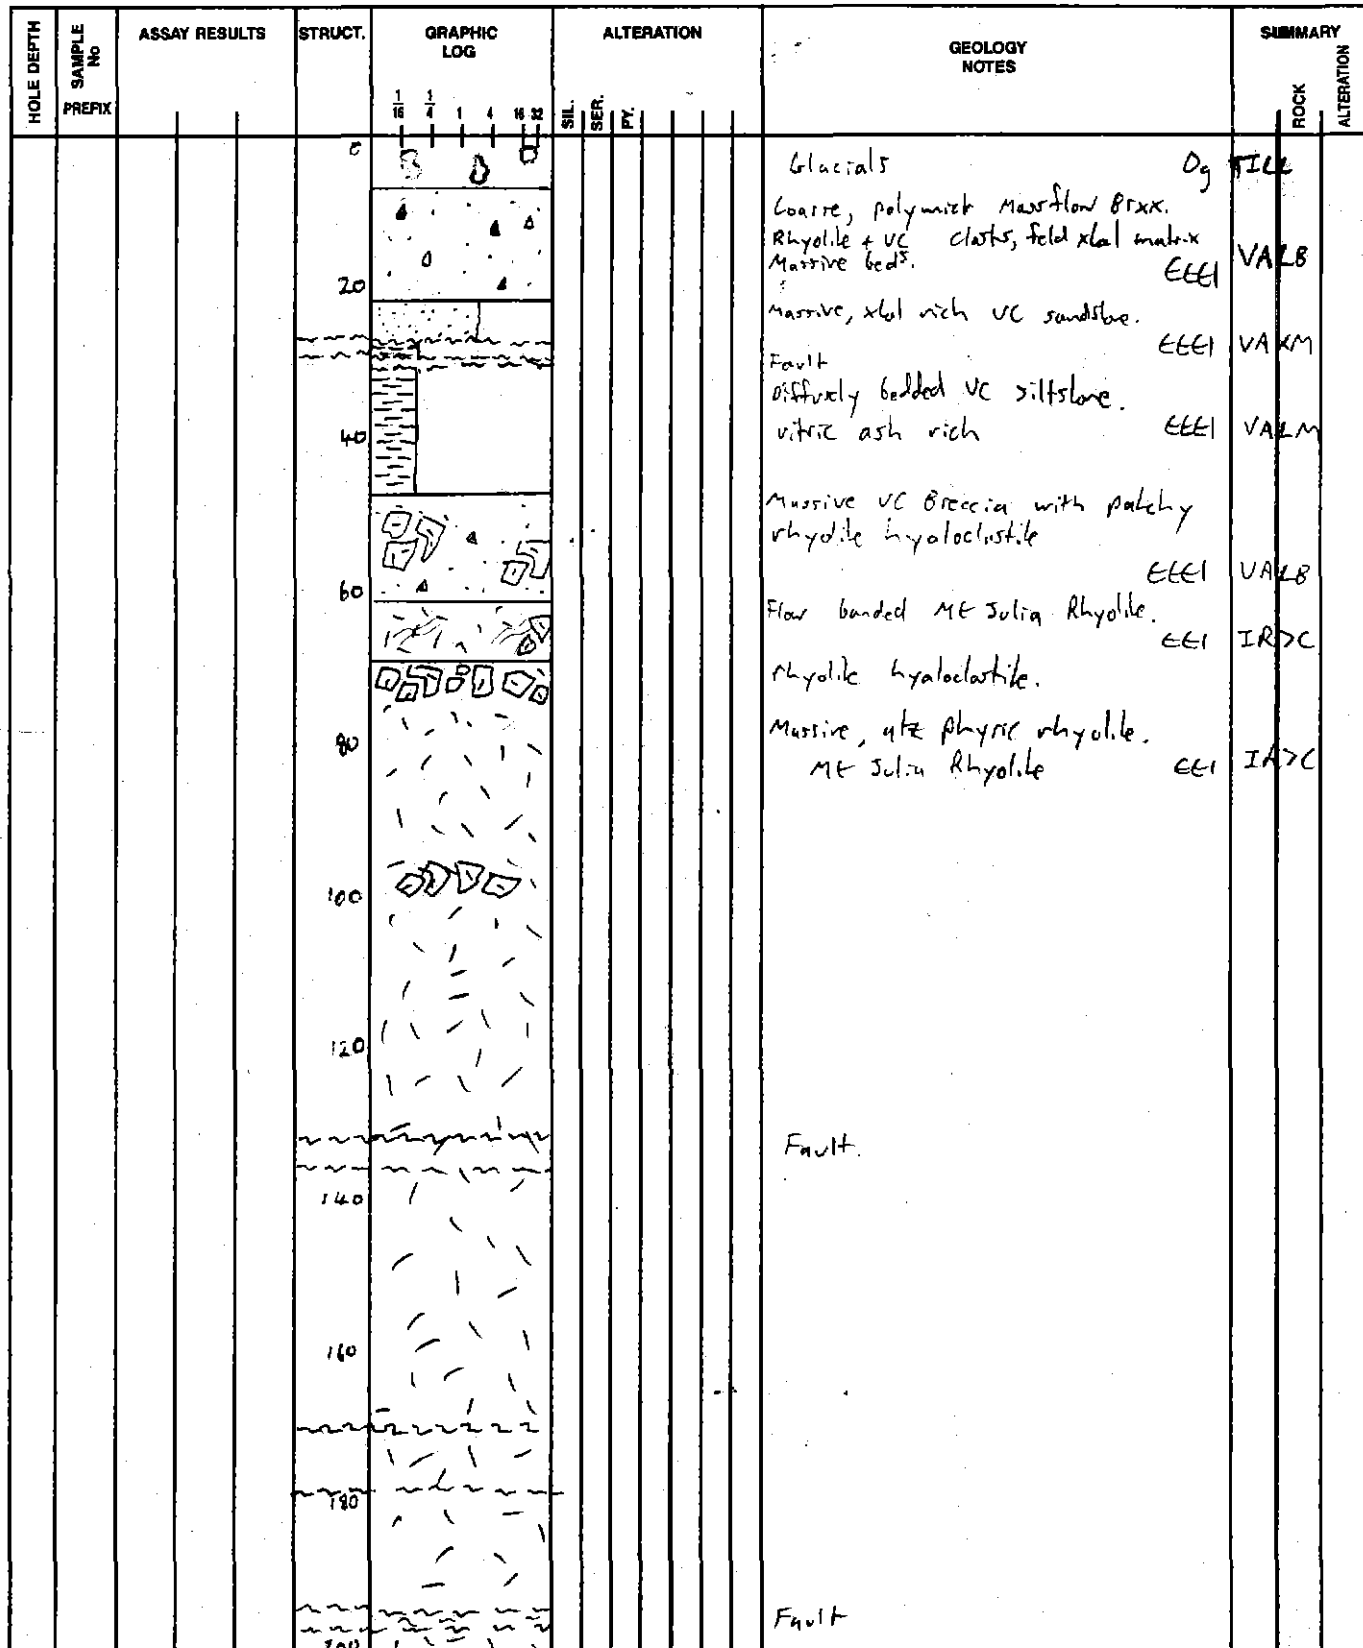 HOLE DEPTH
SAMPLE No
PREFIX
ASSAY RESULTS
STRUCT.
GRAPHIC
LOG
1/16 1/4 1 4 16 32
ALTERATION
SIL. SER. PY.
GEOLOGY
NOTES
SUMMARY
ROCK
ALTERATION
0
Glacials Qg TILL
Coarse, polymict Massflow Brxx.
Rhyolite + VC clasts, feld xtal matrix
Massive beds. EEE1 VALB
20
Massive, xtal rich VC sandstone.
EEE1 VAXM
Fault
Diffusely bedded VC siltstone.
40
vitric ash rich EEE1 VALM
Massive VC Breccia with patchy
rhyolite hyaloclastite
EEE1 VALB
60
Flow banded Mt Julia Rhyolite.
EE1 IR>C
rhyolite hyaloclastite.
Massive, qtz phyric rhyolite.
80
Mt Julia Rhyolite EE1 IR>C
100
120
Fault.
140
160
180
Fault
200